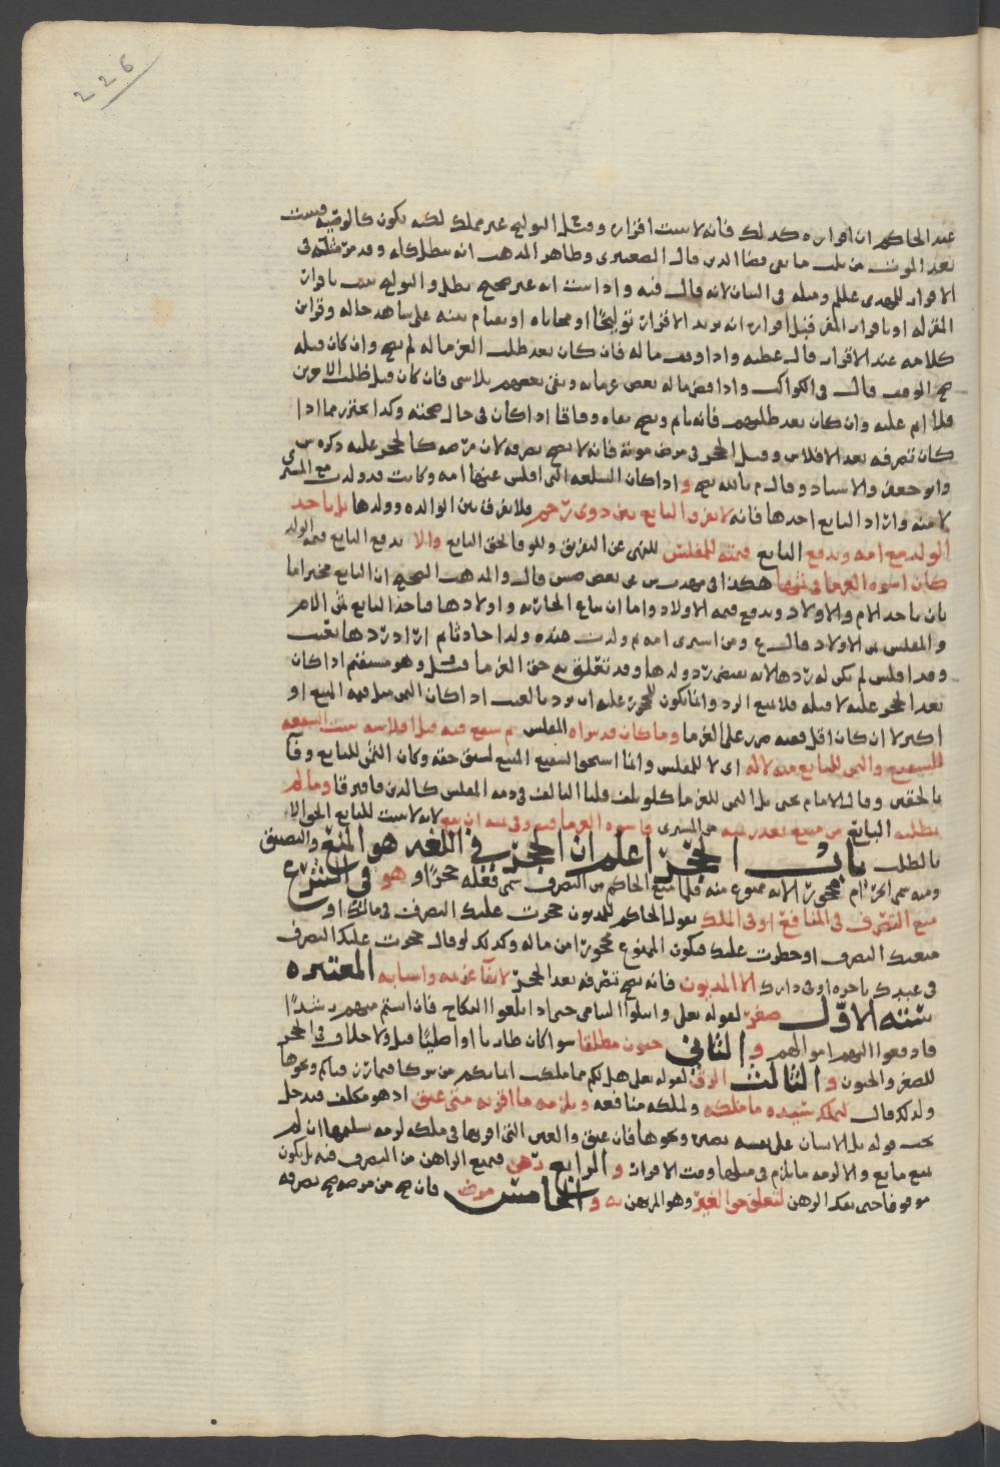 226
عند الحاكم ان اقراره كذلك فانه لا يثبت اقراره وقيل التوليج غير مملك لكنه يكون كالوصيه فيثبت
بعد الموت من ثلث ما بقى قضا الدين قال الصعيترى وظاهر المذهب انه يبطل كله وقد مر مثله فى
الاقرار للمهدى عللم ومثله فى البيان لانه قال فيه واذا ثبت انه غير صحيح بطل والتوليج يثبت باقرار
المقر له او باقرار المقر قبل اقراره انه يريد الاقرار توليجًا او محاباه او بقيام بينه على شاهد حاله وقراين
كلامه عند الاقرار قال عطيه واذا وقف ماله فان كان بعد طلب الغرما له لم يصح وان كان قبله
صح الوقف قال فى الكواكب واذا قضى ماله بعض غرمايه وبقى بعضهم بلا شى فان كان قبل طلب الاخرين
فلا اثم عليه وان كان بعد طلبهم فانه ياثم ويصح قضاه وفاقا اذا كان فى حال صحته وكذا يحترز مما اذا
كان تصرفه بعد الافلاس وقبل الحجر فى مرض موته فانه لا يصح تصرفه لان مرضه كالحجر عليه ذكره س
وابو جعفر والاستاد وقال م بالله يصح واذا كان السلعه التى افلس عنها امه وكانت قد ولدت مع المشترى
لا منه واراد البايع اخذها فانه لا يفرق البايع بين ذوى رحم فلا يفرق بين الوالده وولدها بل ياخذ
الولد مع امه ويدفع البايع قيمته للمفلس للنهى عن التفريق وللوفا بحق البايع والا يدفع البايع قيمه الولد
كان اسوه الغرما فى ثمنها هكذا فى مهذب ش عن بعض صش قال والمذهب الصحيح ان البايع مخير اما
بان ياخذ الام والاولاد ويدفع قيمه الاولاد واما ان تباع الجاريه واولادها فياخذ البايع ثمن الام
والمفلس ثمن الاولاد قال ع ومن اشترى امه ثم ولدت عنده ولدا حادثا ثم اراد ردها بعيب
وقد افلس لم يكن له ردها لانه يقتضى رد ولدها وقد تعلق به حق الغرما قيل وهو مستقيم اذا كان
بعد الحجر عليه لا قبله فلا يمنع الرد وانما يكون للمحجور عليه ان يرد بالعيب اذا كان الثمن مثل قيمه المبيع او
اكثر لا ان كان اقل ففيه ضرر على الغرما وما كان قد شراه المفلس ثم سفع فيه قبل افلاسه ثبت الشفعه
للشفيع والثمن للبايع منه لا له اى لا للمفلس وانما استحق الشفيع المبيع لسبق حقه وكان الثمن للبايع وفا
بالحقين وقال الامام يحيى بل الثمن للغرما كلو تلف قلنا التالف فى ذمه المفلس كالدين فافترقا وما لم
يطلبه البايع من مبيع تعذر ثمنه من المشترى فاسوه الغرما فيه وفى ثمنه ان بيع لانه لا يثبت للبايع الحق الا
بالطلب باب الحجر اعلم ان الحجر فى اللغه هو المنع والتضييق
ومنه سمى الحرام محجورًا لانه ممنوع منه فلما منع الحاكم من التصرف سمى فعله حجرًا وهو فى الشرع
منع التصرف فى المنافع او فى الملك بقول الحاكم للمديون حجرت عليك التصرف فى مالك او
منعتك التصرف او حظرت عليك فيكون الممنوع محجورًا من ماله وكذلك لو قال حجرت عليك التصرف
فى عبدك باخره او فى دارك الا المديون فانه يصح تصرفه بعد الحجر لايفآ غرمه واسبابه المعتبره
سته الاول صغر لقوله تعلى وابتلوا اليتامى حتى اذا بلغوا النكاح فان انستم منهم رشدًا
فادفعوا اليهم اموالهم والثانى جنون مطلقا سوا كان طاريا او اصليًا قيل ولا خلاف فى الحجر
للصغر والجنون والثالث الرق لقوله تعلى هل لكم مما ملكت ايمانكم من شركا فيما رزقناكم ونحوها
ولذلك قال ليملك سيده ما ملكه ولملكه منافعه ويلزمه ما اقر به متى عتق اذ هو مكلف فيدخل
تحت قوله بل الانسان على نفسه بصيره ونحوها فان عتق والعين التى اقر بها فى ملكه لزمه تسليمها ان لم
يمنع مانع والا لزمه ما يلزم فى مثلها وقت الاقرار والرابع رهن فيمنع الراهن من التصرف فيه بل يكون
موقوفا حتى يفك الرهن لتعلق حق الغير وهو المرتهن به والخامس مرض فان صح من مرضه صح تصرفه